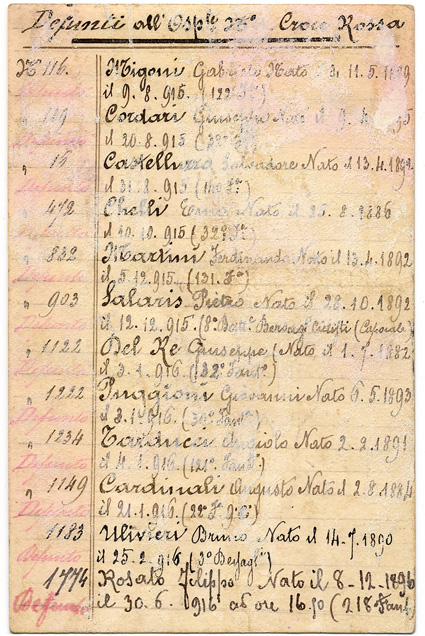 Defunti all'Osple Mo Croce Rossa
No 116. Migoni Gabriele Nato il 11.5.1889
Defunto il 9.8.915. (122° Fa)
" 149 Cordari Giuseppe Nato il 9.4.
Defunto il 20.8.915 (32° F.)
" 15 Salvadore Nato il 13.4.1892
Defunto il 31.8.915 (140 Fa)
" 472 Chelli Nato il 25.8.1886
Defunto il 10.10.915 (32° Fa)
" 832 Martini Ferdinando Nato il 13.4.1892
Defunto il 5.12.915. (131. Fa)
" 903 Salaris Pietro Nato il 28.10.1892
Defunto il 12.12.915 (8° Batt. Bersagl. Ciclisti (Caporale)
" 1122 Del Re Giuseppe (Nato il 1.7.1882
Defunto il 3.1.916. (32° Fant°)
" 1222 Puggioni Giovanni Nato 6.5.1893
Defunto il 3.1.916. (30° Fant°)
" 1234 Angiolo Nato 2.2.1891
Defunto il 4.1.916 (121° Fant.)
" 1149 Cardinali Augusto Nato il 2.8.1884
Defunto il 21.1.916
1183 Ulivieri Bruno Nato il 14.7.1890
Defunto il 25.2.916 (3° Bersagl)
1774 Rosato Filippo Nato il 8-12.1896
Defunto il 30.6.1916 ad ore 16.50 (218 Fant.